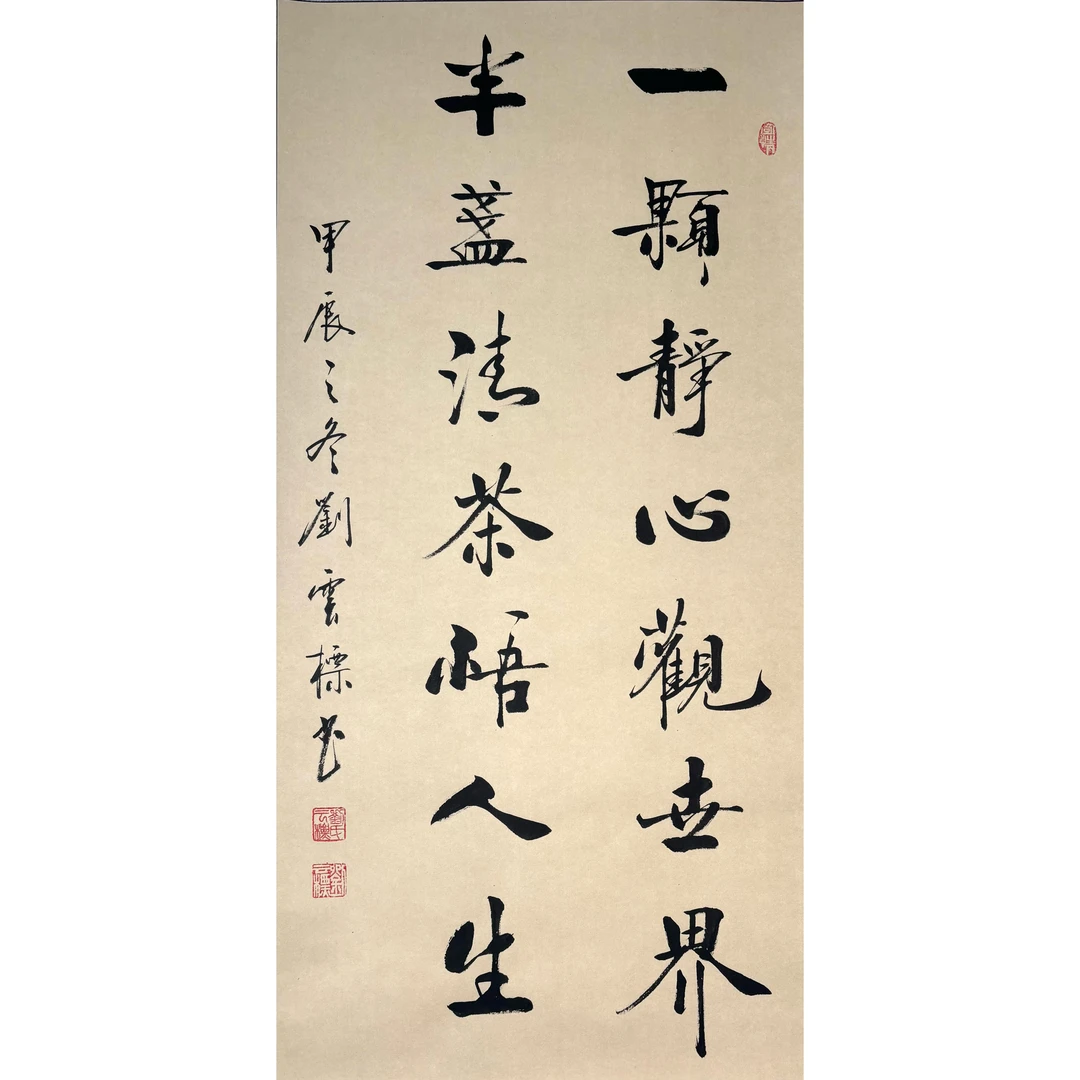 一顆靜心觀世界
半盞清茶悟人生
甲辰之冬劉雲標书